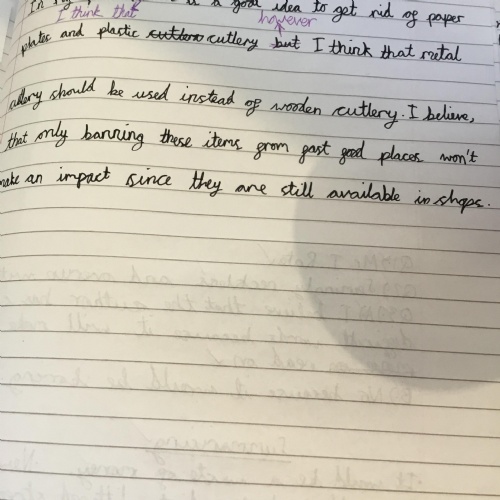 is a good idea to get rid of paper
I think that however
plates and plastic cutlery but I think that metal
cutlery should be used instead of wooden cutlery. I believe,
that only banning these items from fast food places won't
make an impact since they are still available in shops.